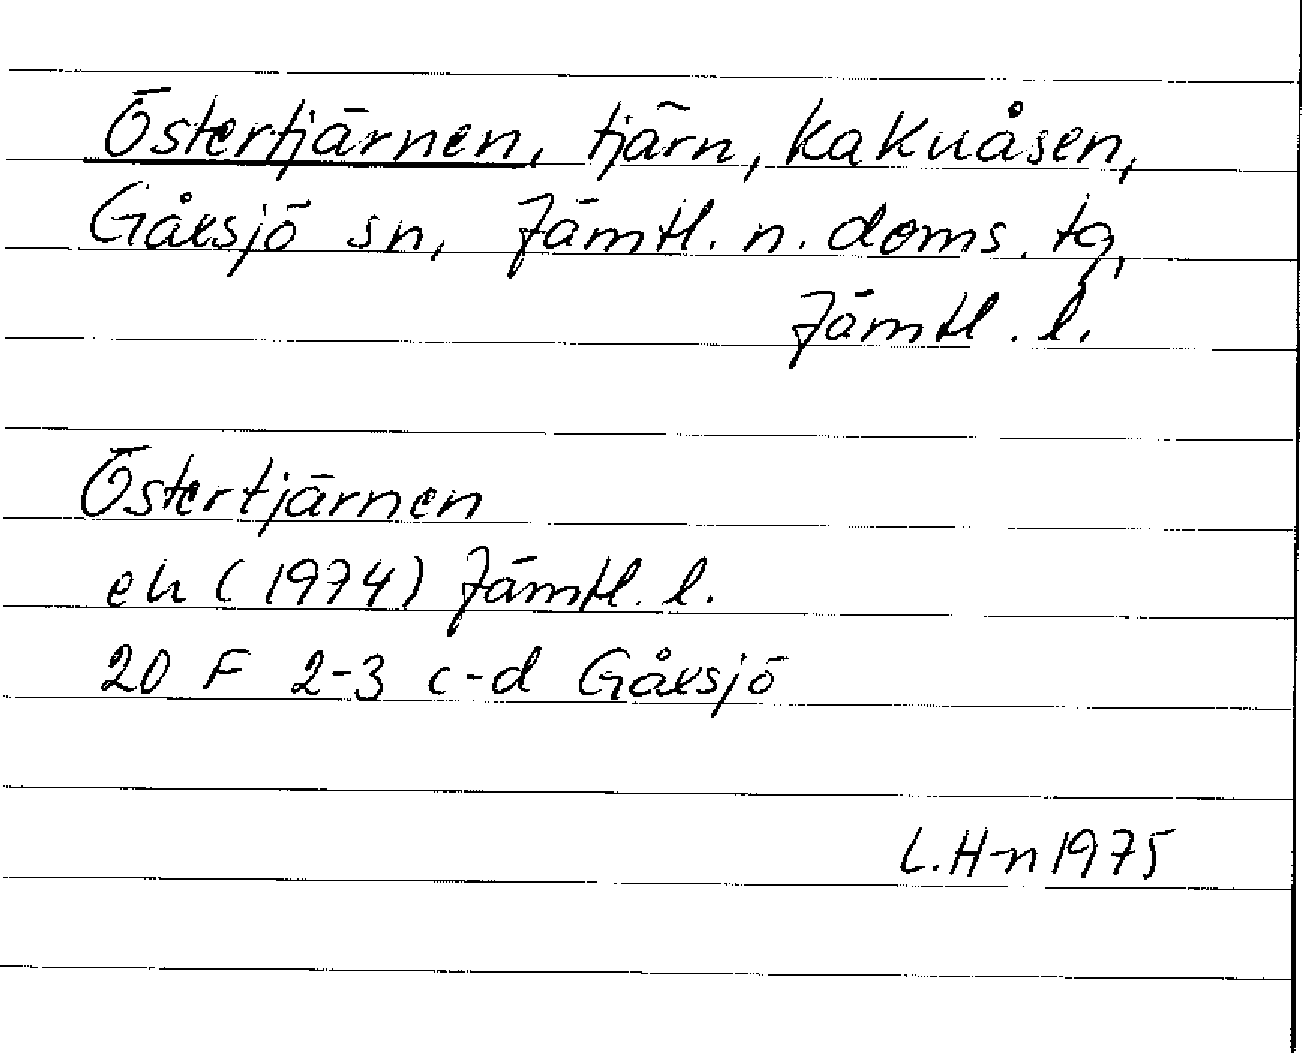 Östertjärnen, tjärn, Kakuåsen,
Gåxsjö sn, Jämtl. n. doms. tg,
Jämtl. l.
Östertjärnen
ek (1974) Jämtl. l.
20 F 2-3 c-d Gåxsjö
L.H-n 1975